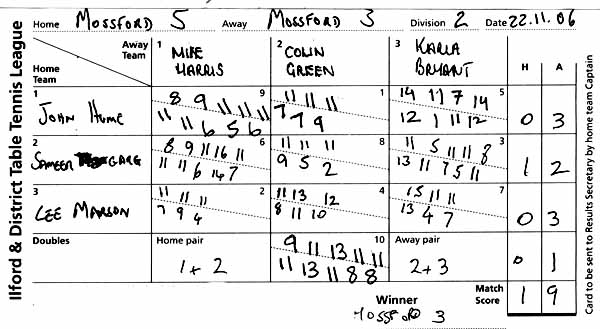 Ilford & District Table Tennis League
Home MOSSFORD 5 Away MOSSFORD 3 Division 2 Date 22.11.06
Away Team
Home Team
1 MIKE HARRIS
2 COLIN GREEN
3 KARLA BRYANT
H A
1 JOHN HUME
8 9 11 11 11 9
11 11 6 5 6
11 11 11 1
7 7 9
14 11 7 14 5
12 1 11 12
0 3
2 SAMEER GARG
8 9 11 16 11 6
11 11 6 14 7
11 11 11 8
9 5 2
11 5 11 11 8 3
13 11 7 5 11
1 2
3 LEE MARSON
11 11 11 2
7 9 4
11 13 12 4
8 11 10
15 11 11 7
13 4 7
0 3
Doubles
Home pair
1 + 2
9 11 13 11 11 10
11 13 11 8 8
Away pair
2 + 3
0 1
Winner
MOSSFORD 3
Match Score
1 9
Card to be sent to Results Secretary by home team Captain